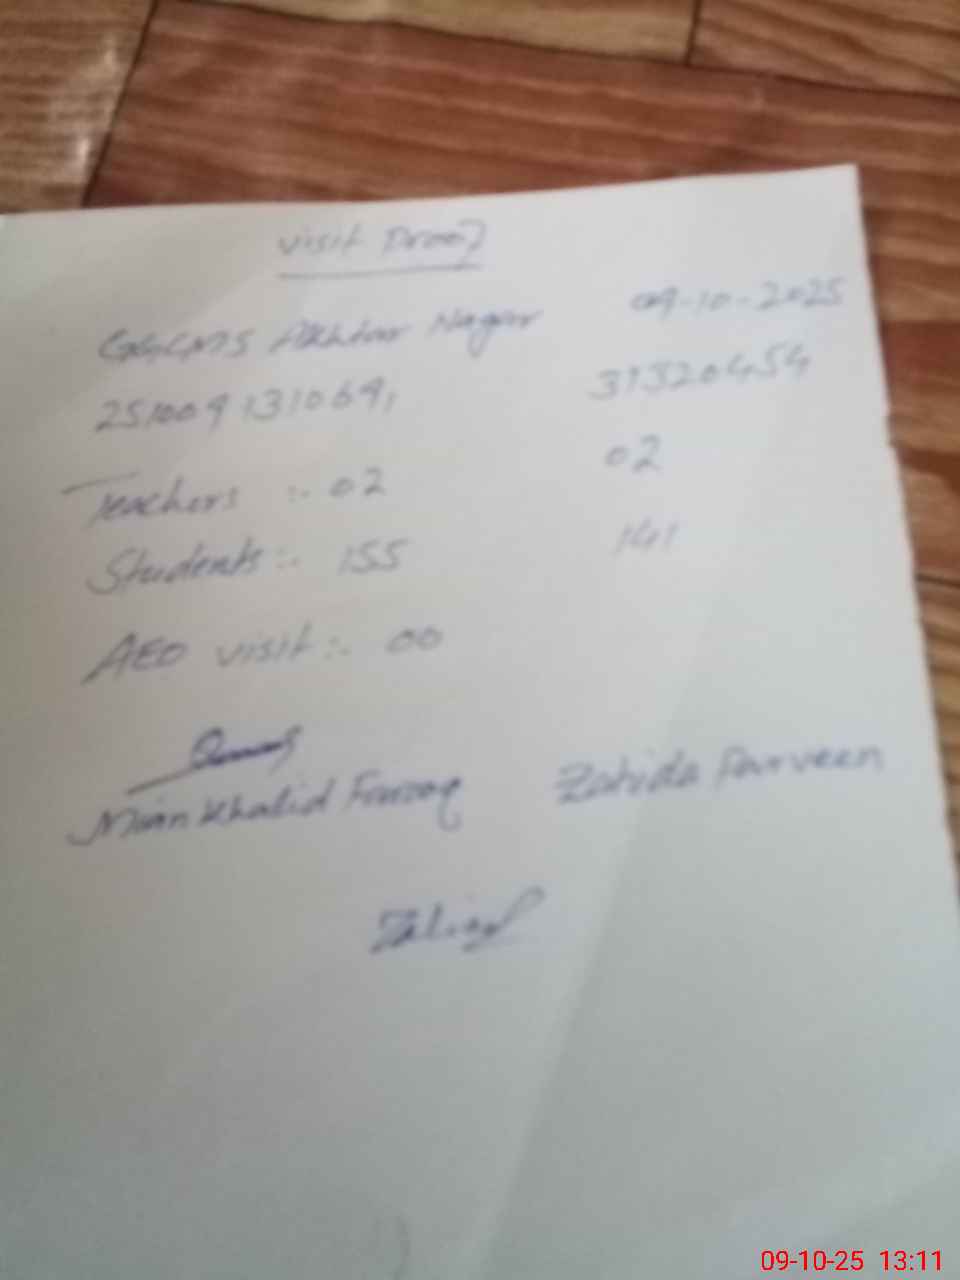 Visit Proof
GGCMS Akhtar Nagar 09-10-2025
251009131069, 31320454
Teachers :- 02 02
Students :- 155 141
AEO visit :- 00
Mian Khalid Farooq Zahida Parveen
09-10-25 13:11